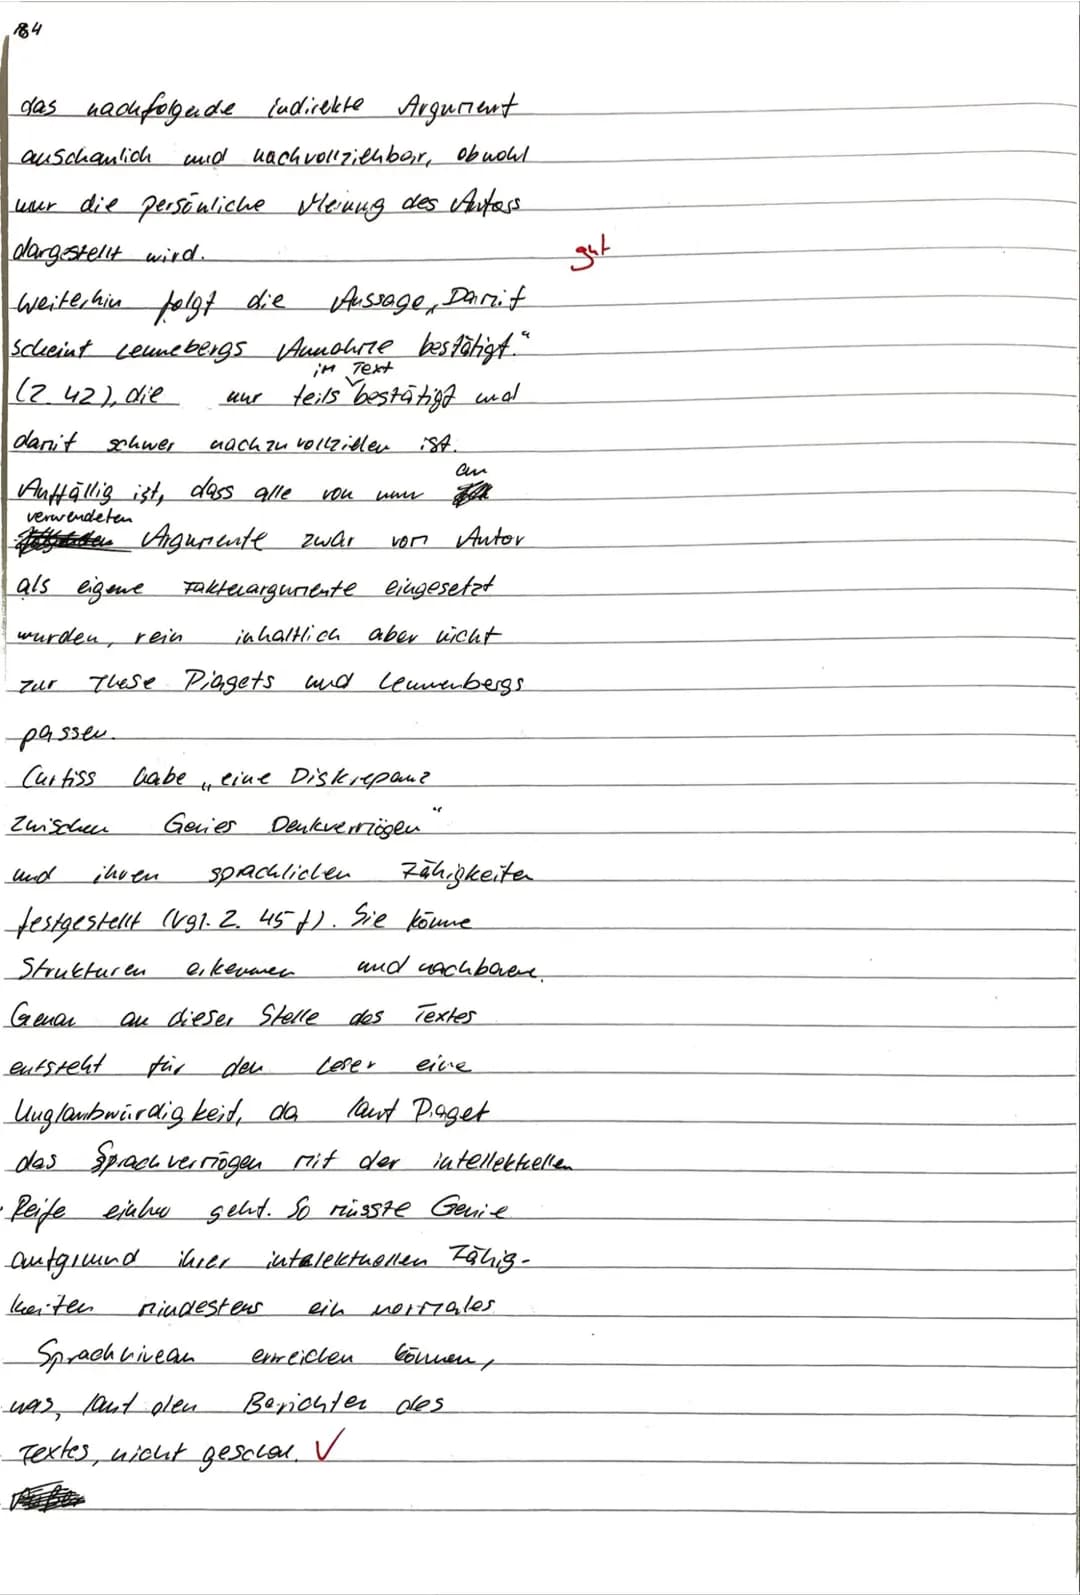 84
das nachfolgende indirekte Argument
anschaulich und nachvollziehbar, obwohl
nur die persönliche Meinung des Autors
dargestellt wird.
gut
Weiterhin folgt die Aussage „Damit
scheint Lennebergs Annahme bestätigt."
im Text
(Z. 42), die nur teils bestätigt und
damit schwer nachzuvollziehen ist.
an
Auffällig ist, dass alle von nun
verwendeten
Argumente zwar vom Autor
als eigene Faktenargumente eingesetzt
wurden, rein inhaltlich aber nicht
zur These Piagets und Lennenbergs
passen.
Curtiss habe „eine Diskrepanz
zwischen Genies Denkvermögen"
und ihren sprachlichen Fähigkeiten
festgestellt (vgl. Z. 45 f). Sie könne
Strukturen erkennen und nachbauen.
Genau an dieser Stelle des Textes
entsteht für den Leser eine
Unglaubwürdigkeit, da laut Piaget
das Sprachvermögen mit der intellektuellen
Reife einher geht. So müsste Genie
aufgrund ihrer intelektuellen Fähig-
keiten mindestens ein normales
Sprachniveau erreichen können,
was, laut den Berichten des
Textes, nicht geschah. ✓